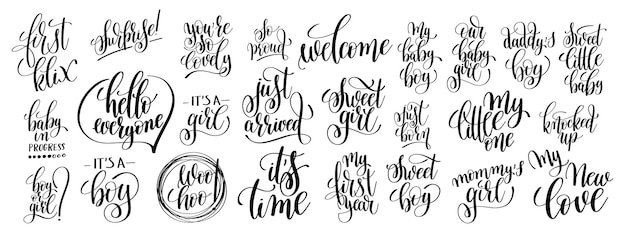 first
klix
surprise!
you're
so
lovely
so
proud
welcome
my
baby
boy
our
baby
girl
daddy's
boy
sweet
little
baby
baby
in
PROGRESS
hello
everyone
IT'S A
girl
just
arrived
sweet
girl
just
born
my
little
one
knocked
up
boy
or
girl?
IT'S A
boy
woo
hoo
it's
time
my
first
year
sweet
boy
mommy's
girl
my
new
love